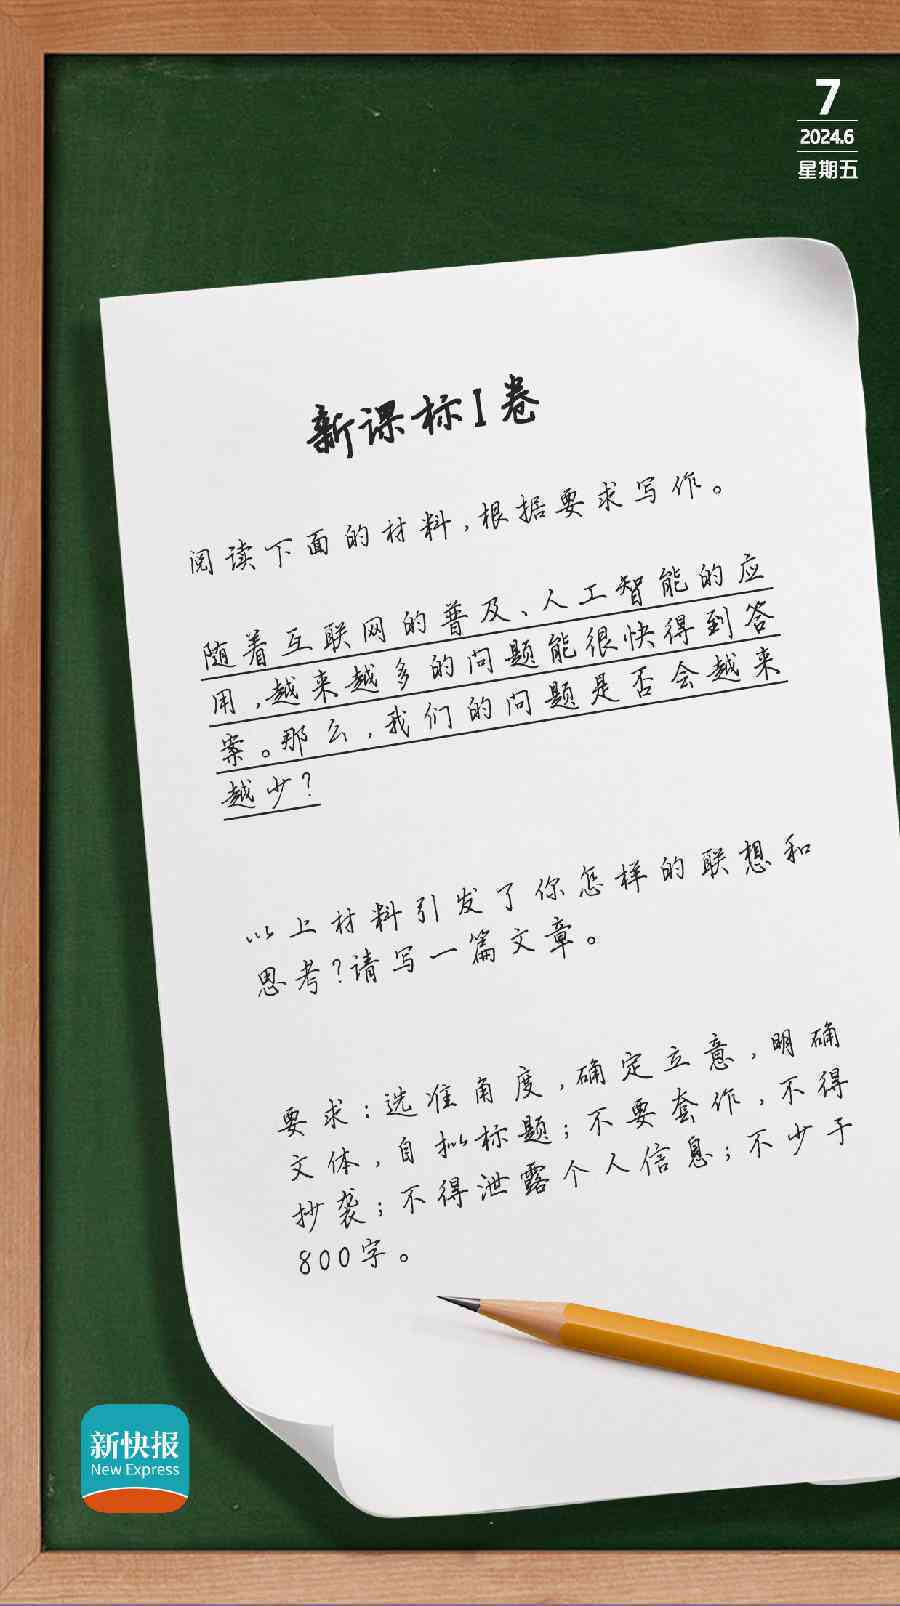 7
2024.6
星期五
新课标I卷
阅读下面的材料,根据要求写作。
随着互联网的普及、人工智能的应
用,越来越多的问题能很快得到答
案。那么,我们的问题是否会越来
越少?
以上材料引发了你怎样的联想和
思考?请写一篇文章。
要求:选准角度,确定立意,明确
文体,自拟标题;不要套作,不得
抄袭;不得泄露个人信息;不少于
800字。
新快报
New Express